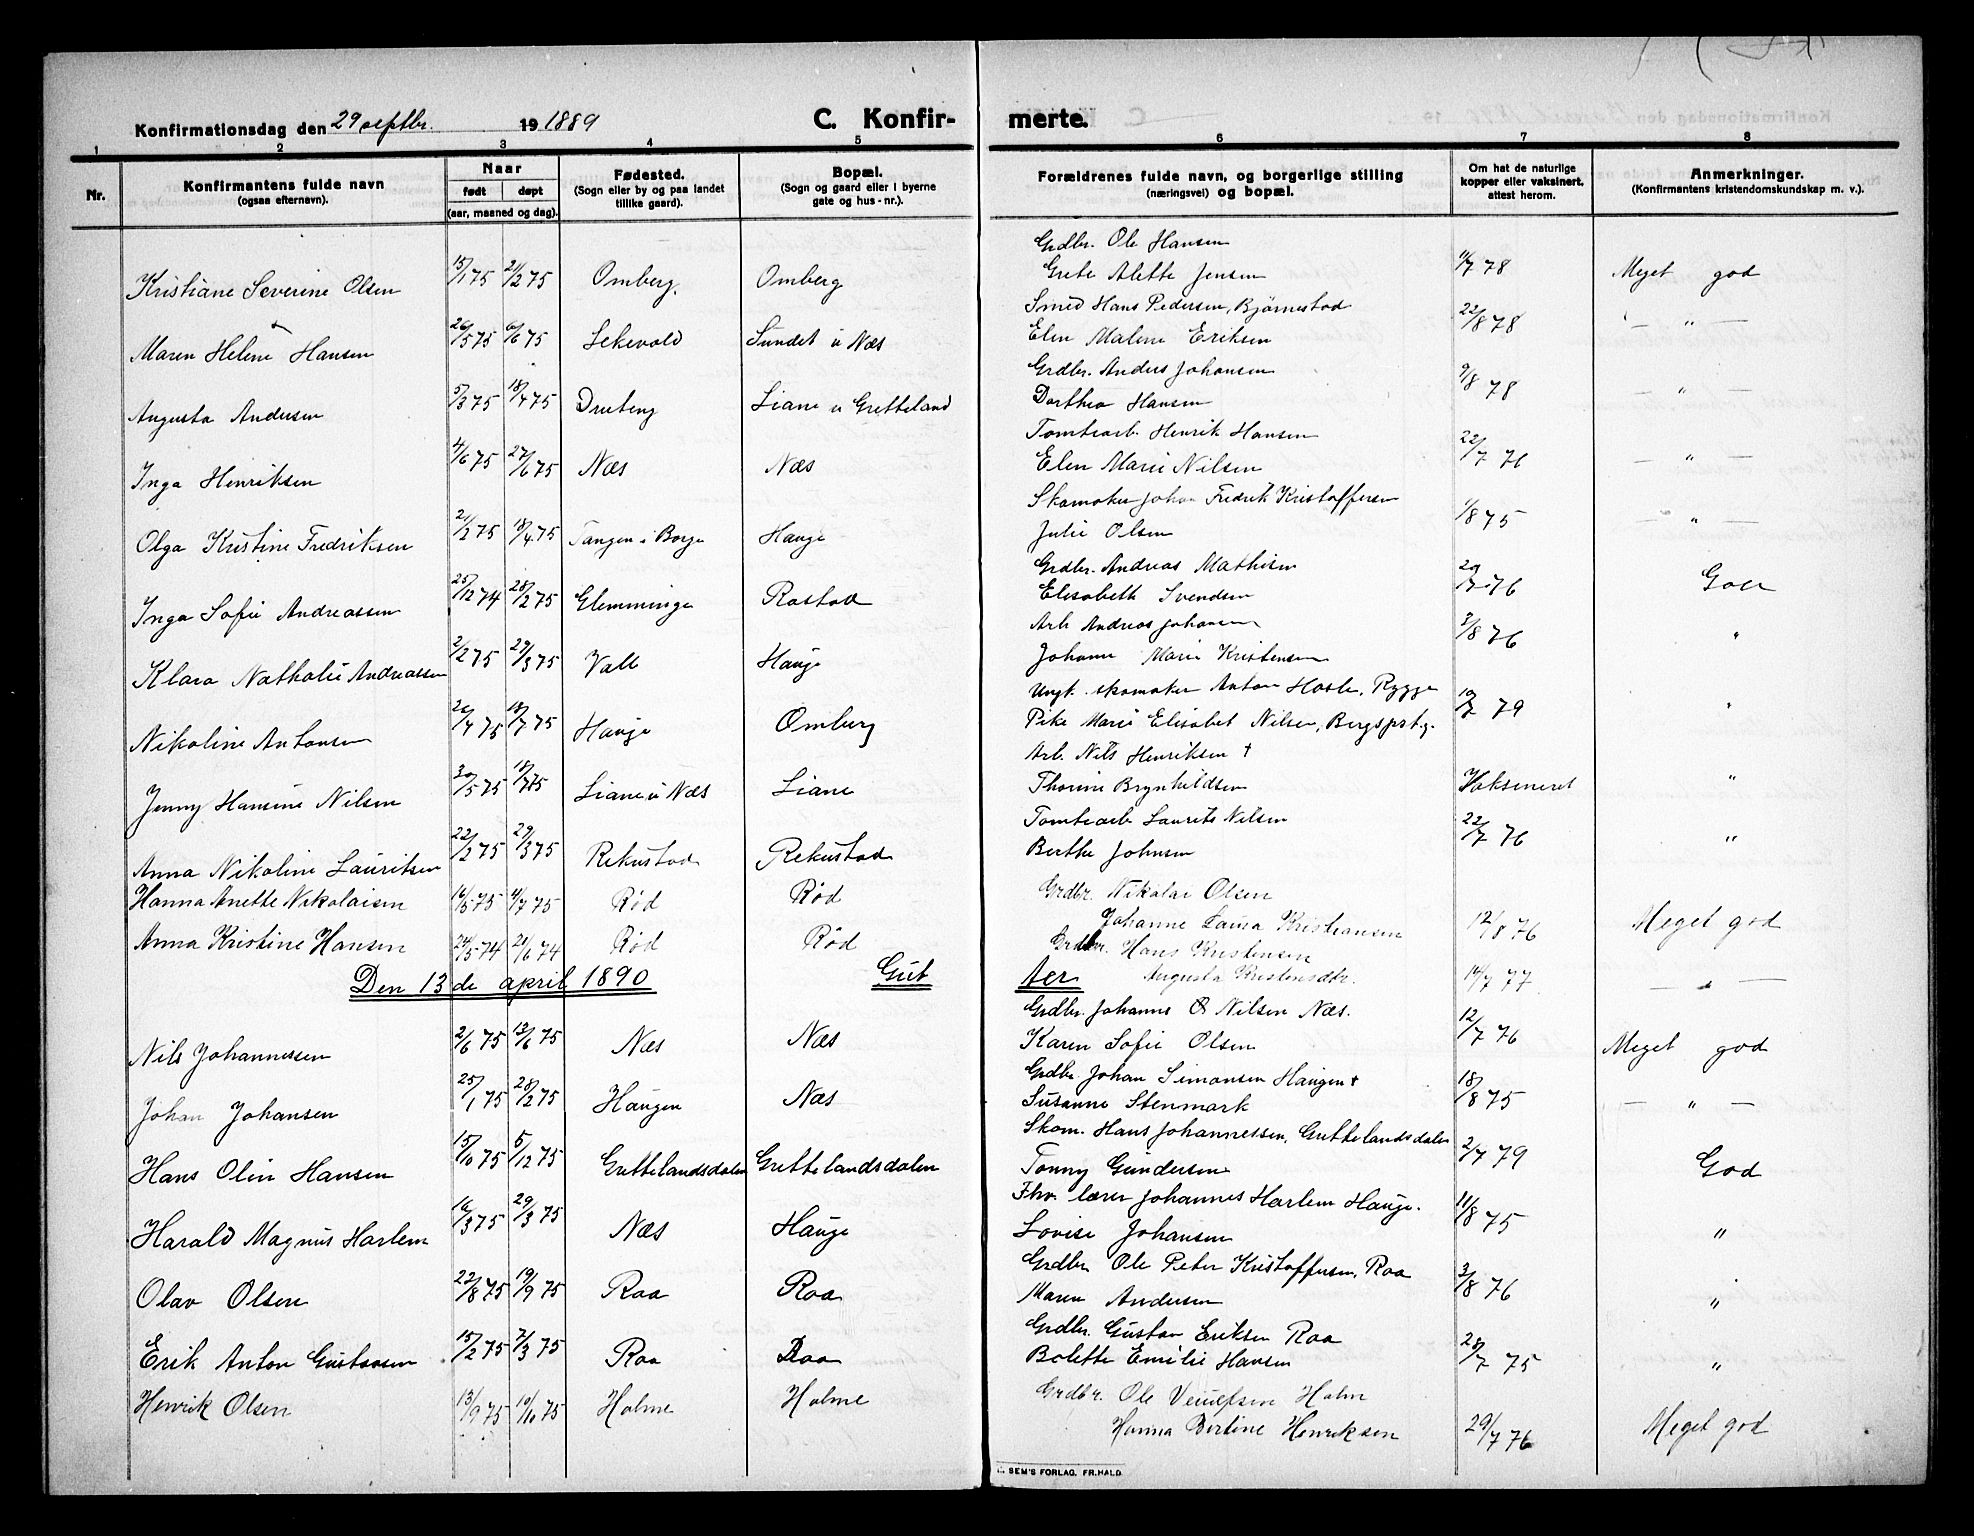 Konfirmationsdag den 29 septbr. 19 1889 C. Konfir- merte.
1 2 3 4 5 6 7 8
Nr. Konfirmantens fulde navn (ogsaa efternavn). Naar født døpt (aar, maaned og dag). Fødested. (Sogn eller by og paa landet tillike gaard). Bopæl. (Sogn og gaard eller i byerne gate og hus-nr.). Forældrenes fulde navn, og borgerlige stilling (næringsvei) og bopæl. Om hat de naturlige kopper eller vaksinert, attest herom. Anmerkninger. (Konfirmantens kristendomskundskap m. v.).
Grdbr. Ole Hansen
Kristiane Severine Olsen 15/1 75 21/2 75 Omberg. Omberg Grete Alette Jensen 11/7 78 Meget god
Smed Hans Pedersen, Bjørnestad
Maren Helene Hansen 26/5 75 6/6 75 Lekevold Sundet u Næs Elen Malene Eriksen 22/8 78 — " —
Grdbr. Anders Johansen
Augusta Andersen 5/3 75 18/4 75 Dueberg Liane u Gretteland Dorthea Hansen 9/8 78 — " —
Tomtearb. Henrik Hansen
Inga Henriksen 4/6 75 27/6 75 Næs Næs Elen Marie Nilsen 22/7 76 — " —
Skomaker Johan Fredrik Kristoffersen
Olga Kristine Fredriksen 21/2 75 18/4 75 Tangen i Borge Hauge Julie Olsen 1/8 75 — " —
Grdbr. Andreas Mathisen
Inga Sofie Andreassen 25/12 74 28/2 75 Glemminge Rostad Elisabeth Svendsen 20/7 76 God
Arb Andreas Johansen
Klara Nathalie Andreassen 2/2 75 29/3 75 Valle Hauge Johanne Marie Kristensen 3/8 76 "
Ungk. skomaker Anton Hasle, Rygge
Nikoline Antonsen 20/4 75 18/7 75 Hauge Omberg Pike Marie Elisabet Nilsen, Bergsprstg. 19/7 79 "
Arb. Nils Henriksen †
Jenny Hansine Nilsen 30/5 75 18/7 75 Liane u Næs Liane Thorine Brynhildsen Vaksineret "
Tomtearb Laurits Nilsen
Anna Nikoline Lauritsen 22/2 75 29/3 75 Rekustad Rekustad Berthe Johnsen 22/7 76 "
Grdbr. Nikolai Olsen
Hanna Anette Nikolaisen 16/5 75 4/7 75 Rød Rød Johanne Laura Kristiansen 12/8 76 Meget god
Grdbr. Hans Kristensen
Anna Kristine Hansen 24/5 74 21/6 74 Rød Rød Augusta Kristensdtr. 14/7 77 — " —
Den 13de april 1890 Gut ter
Grdbr. Johannes Nilsen Næs.
Nils Johannessen 2/6 75 13/6 75 Næs Næs Karen Sofie Olsen 12/7 76 Meget god
Grdbr. Johan Simonsen Haugen †
Johan Johansen 25/1 75 28/2 75 Haugen Næs Susanne Stenmark 18/8 75 — " —
Skom. Hans Johannessen, Grettelandsdalen
Hans Olin Hansen 15/10 75 5/12 75 Grettelandsdalen Grettelandsdalen Tonny Gundersen 2/7 79 God
Fhv. lærer Johannes Harlem Hauge.
Harald Magnus Harlem 16/3 75 29/3 75 Næs Hauge Lovise Johansen 11/8 75 "
Grdbr Ole Peter Kristoffersen, Raa
Olav Olsen 22/8 75 19/9 75 Raa Raa Maren Andersen 3/8 76 "
Grdbr. Gustav Eriksen Raa
Erik Anton Gustavsen 15/2 75 7/3 75 Raa Raa Bolette Emilie Hansen 28/7 75 "
Grdbr. Ole Holm
Henrik Olsen 13/9 75 10/10 75 Holme Holme Hanna Bertine Henriksen 29/7 76 Meget god
SEM'S FORLAG. FR.HALD